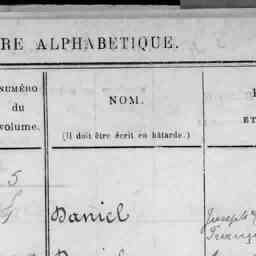 RE ALPHABETIQUE.
NUMÉRO
du
volume.
NOM.
(Il doit être écrit en bâtarde.)
ET
5
Daniel
Joseph